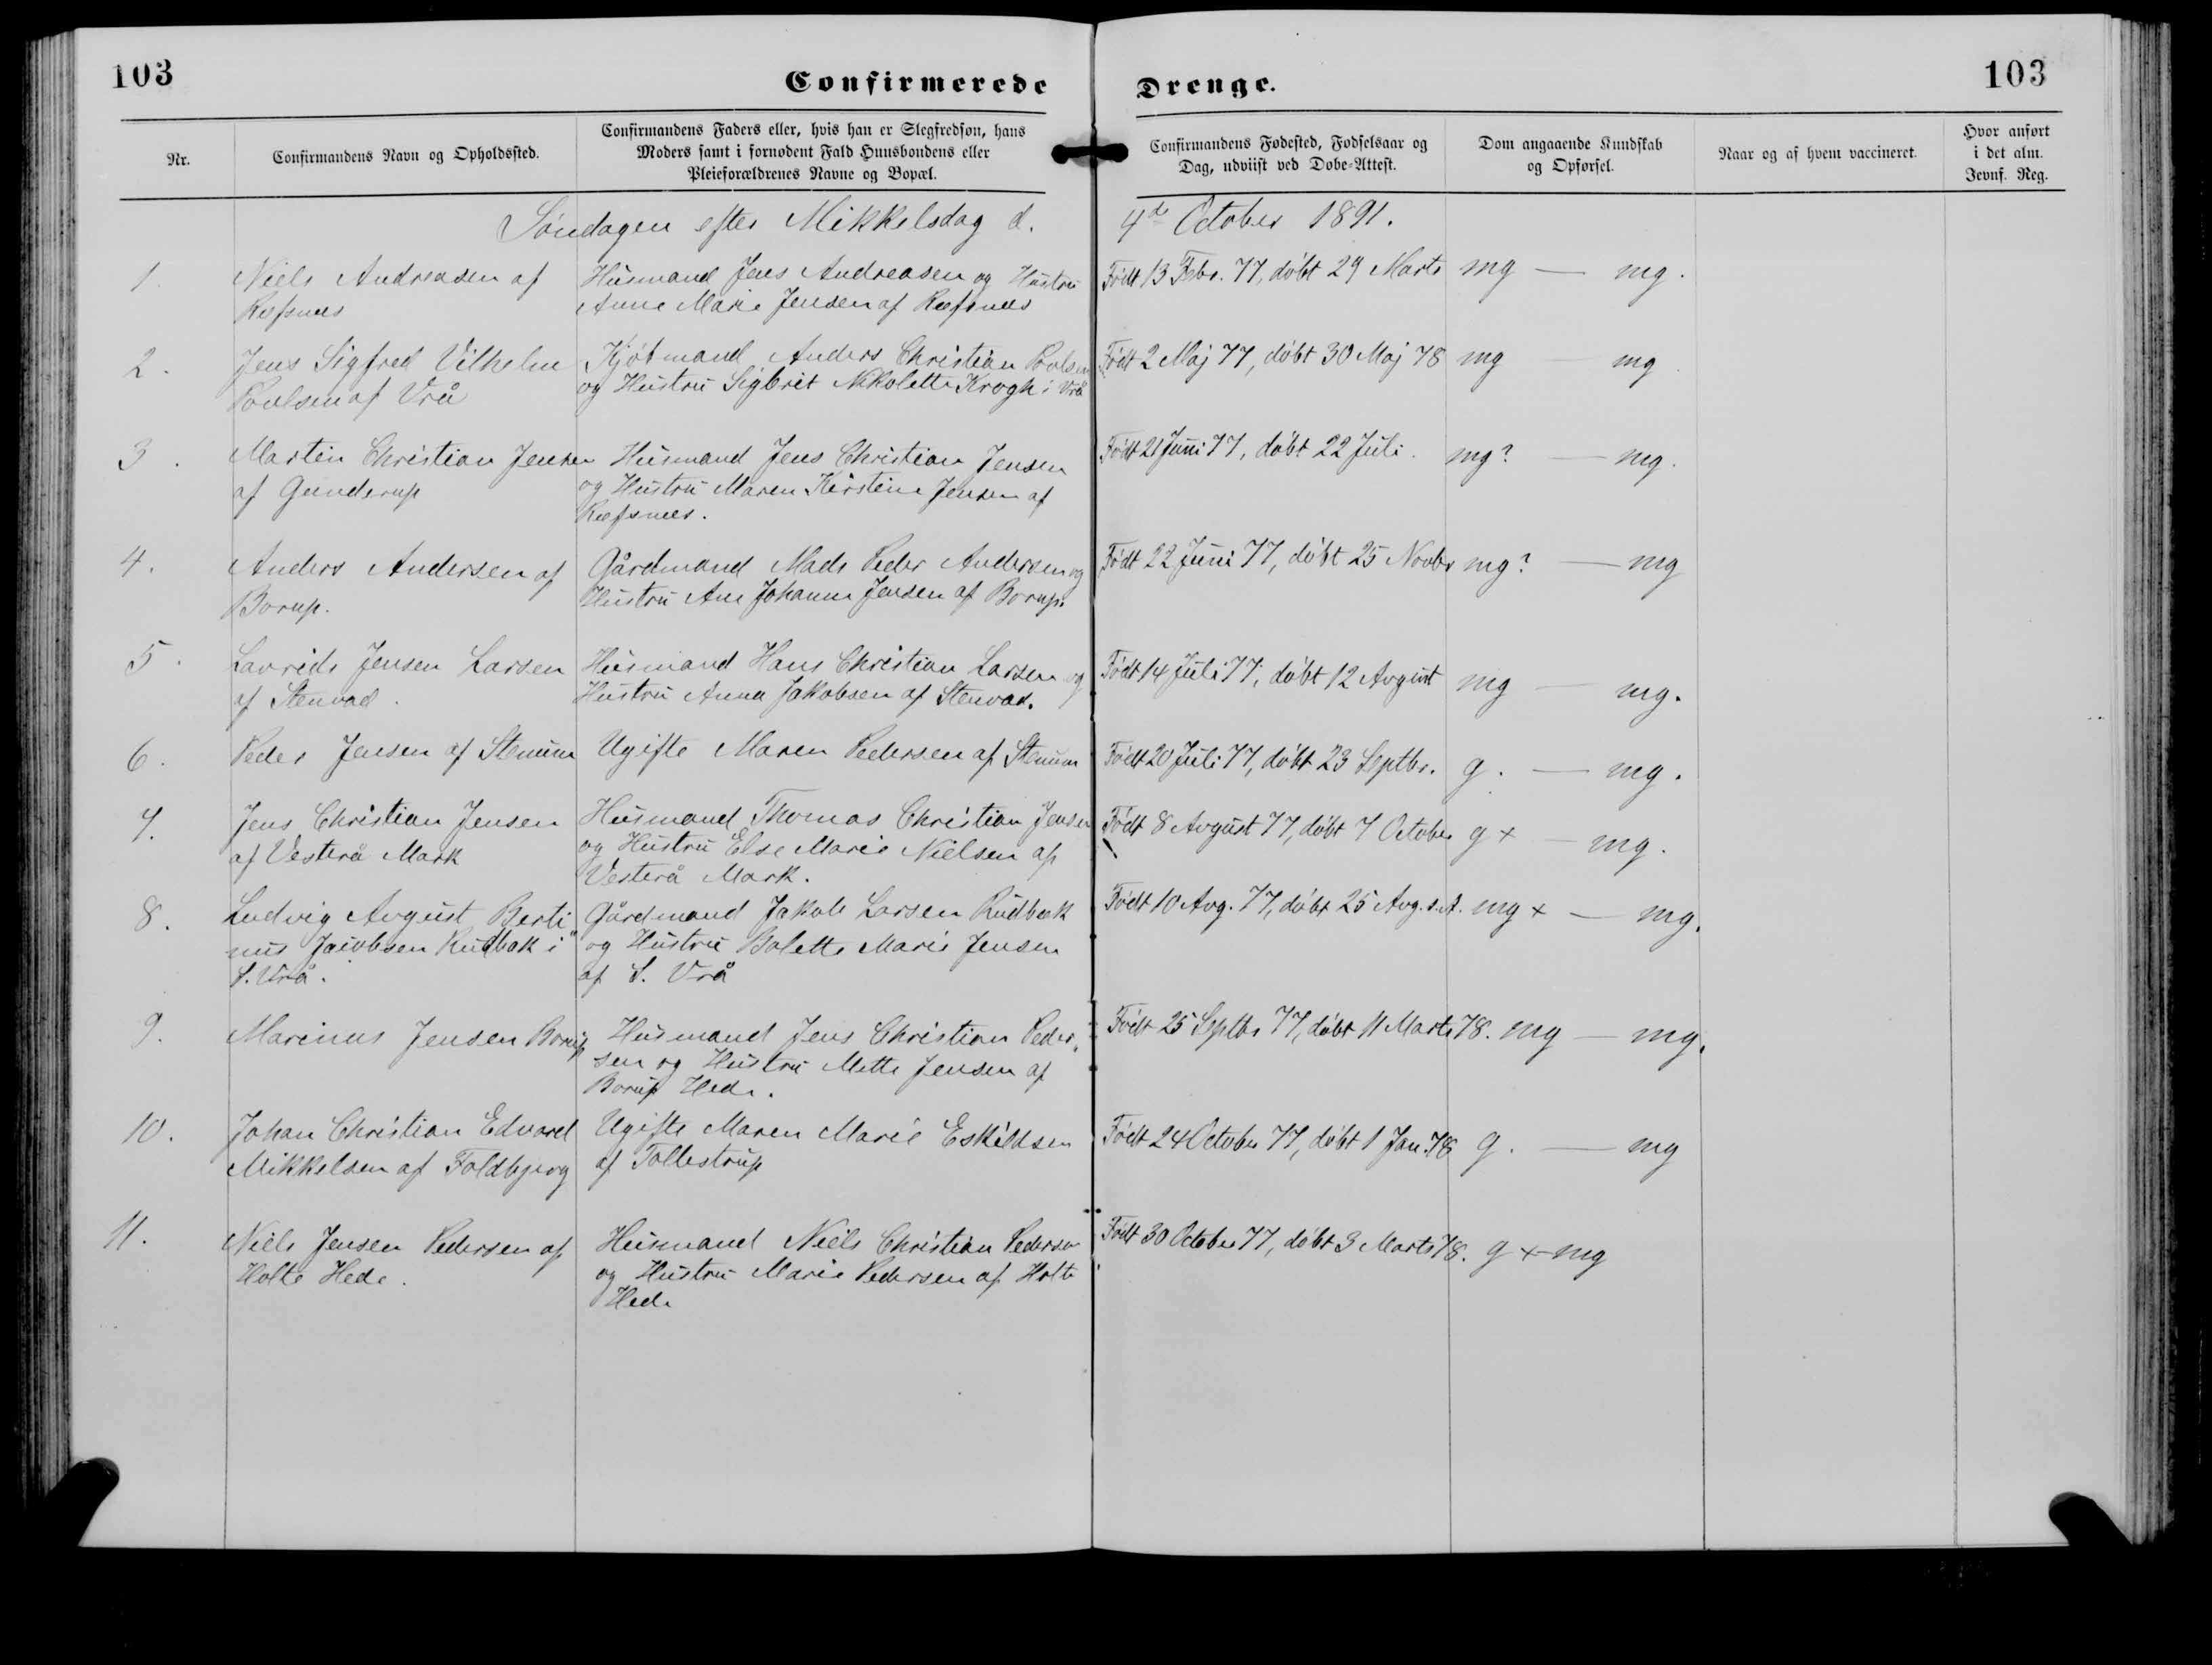 103
Confirmerede Drenge.
103
Nr.
Confirmandens Navn og Opholdssted.
Confirmandens Faders eller, hvis han er Slegfredsøn, hans
Moders samt i fornødent Fald Huusbondens eller
Pleieforældrenes Navne og Bopæl.
Confirmandens Fødested, Fødselsaar og
Dag, udviist ved Døbe-Attest.
Dom angaaende Kundskab
og Opførsel.
Naar og af hvem vaccineret.
Hvor anført
i det alm.
Jevnf. Reg.
Søndagen efter Mikkelsdag d. 4de October 1891.
1.
Niels Andreasen af
Ræfsnæs
Husmand Jens Andreasen og Hustru
Anne Marie Jensen af Ræfsnæs
Født 13 Febr. 77, döbt 29 Marts
mg — mg.
2.
Jens Sigfred Vilhelm
Poulsen af Vrå
Kjøbmand Anders Christian Poulsen
og Hustru Sigbrit Nikolette Krogh i Vrå
Født 2 Maj 77, döbt 30 Maj 78
mg — mg
3.
Martin Christian Jensen
af Gunderup
Husmand Jens Christian Jensen
og Hustru Maren Kirstine Jensen af
Ræfsnæs.
Født 21 Juni 77, döbt 22 Juli.
mg? — mg.
4.
Anders Andersen af
Borup.
Gårdmand Mads Peder Andersen og
Hustru Ane Johanne Jensen af Borup.
Født 22 Juni 77, döbt 25 Novbr
mg? — mg
5.
Laurids Jensen Larsen
af Stenvad.
Husmand Hans Christian Larsen og
Hustru Anna Jakobsen af Stenvad.
Født 14 Juli 77, döbt 12 Avgust
mg — mg.
6.
Peder Jensen af Stenum
Ugifte Maren Pedersen af Stenum
Født 20 Juli 77, döbt 23 Septbr.
g. — mg.
7.
Jens Christian Jensen
af Vesterå Mark
Husmand Thomas Christian Jensen
og Hustru Else Marie Nielsen af
Vesterå Mark.
Født 8 Avgust 77, döbt 7 October
g + — mg.
8.
Ludvig Avgust Berti-
nus Jacobsen Rudbak i
S. Vrå.
Gårdmand Jakob Larsen Rudbak
og Hustru Bolette Marie Jensen
af S. Vrå
Født 10 Avg. 77, döbt 25 Avg. s.A.
mg + — mg.
9.
Marinus Jensen Borup
Husmand Jens Christian Peder-
sen og Hustru Mette Jensen af
Borup Hede.
Født 25 Septbr 77, döbt 11 Marts 78.
mg — mg.
10.
Johan Christian Edvard
Mikkelsen af Foldbjerg
Ugifte Maren Marie Eskildsen
af Tollestrup
Født 24 October 77, döbt 1 Jan. 78
g. — mg
11.
Niels Jensen Pedersen af
Holte Hede.
Husmand Niels Christian Pedersen
og Hustru Marie Pedersen af Holte
Hede
Født 30 October 77, döbt 3 Marts 78.
g + — mg